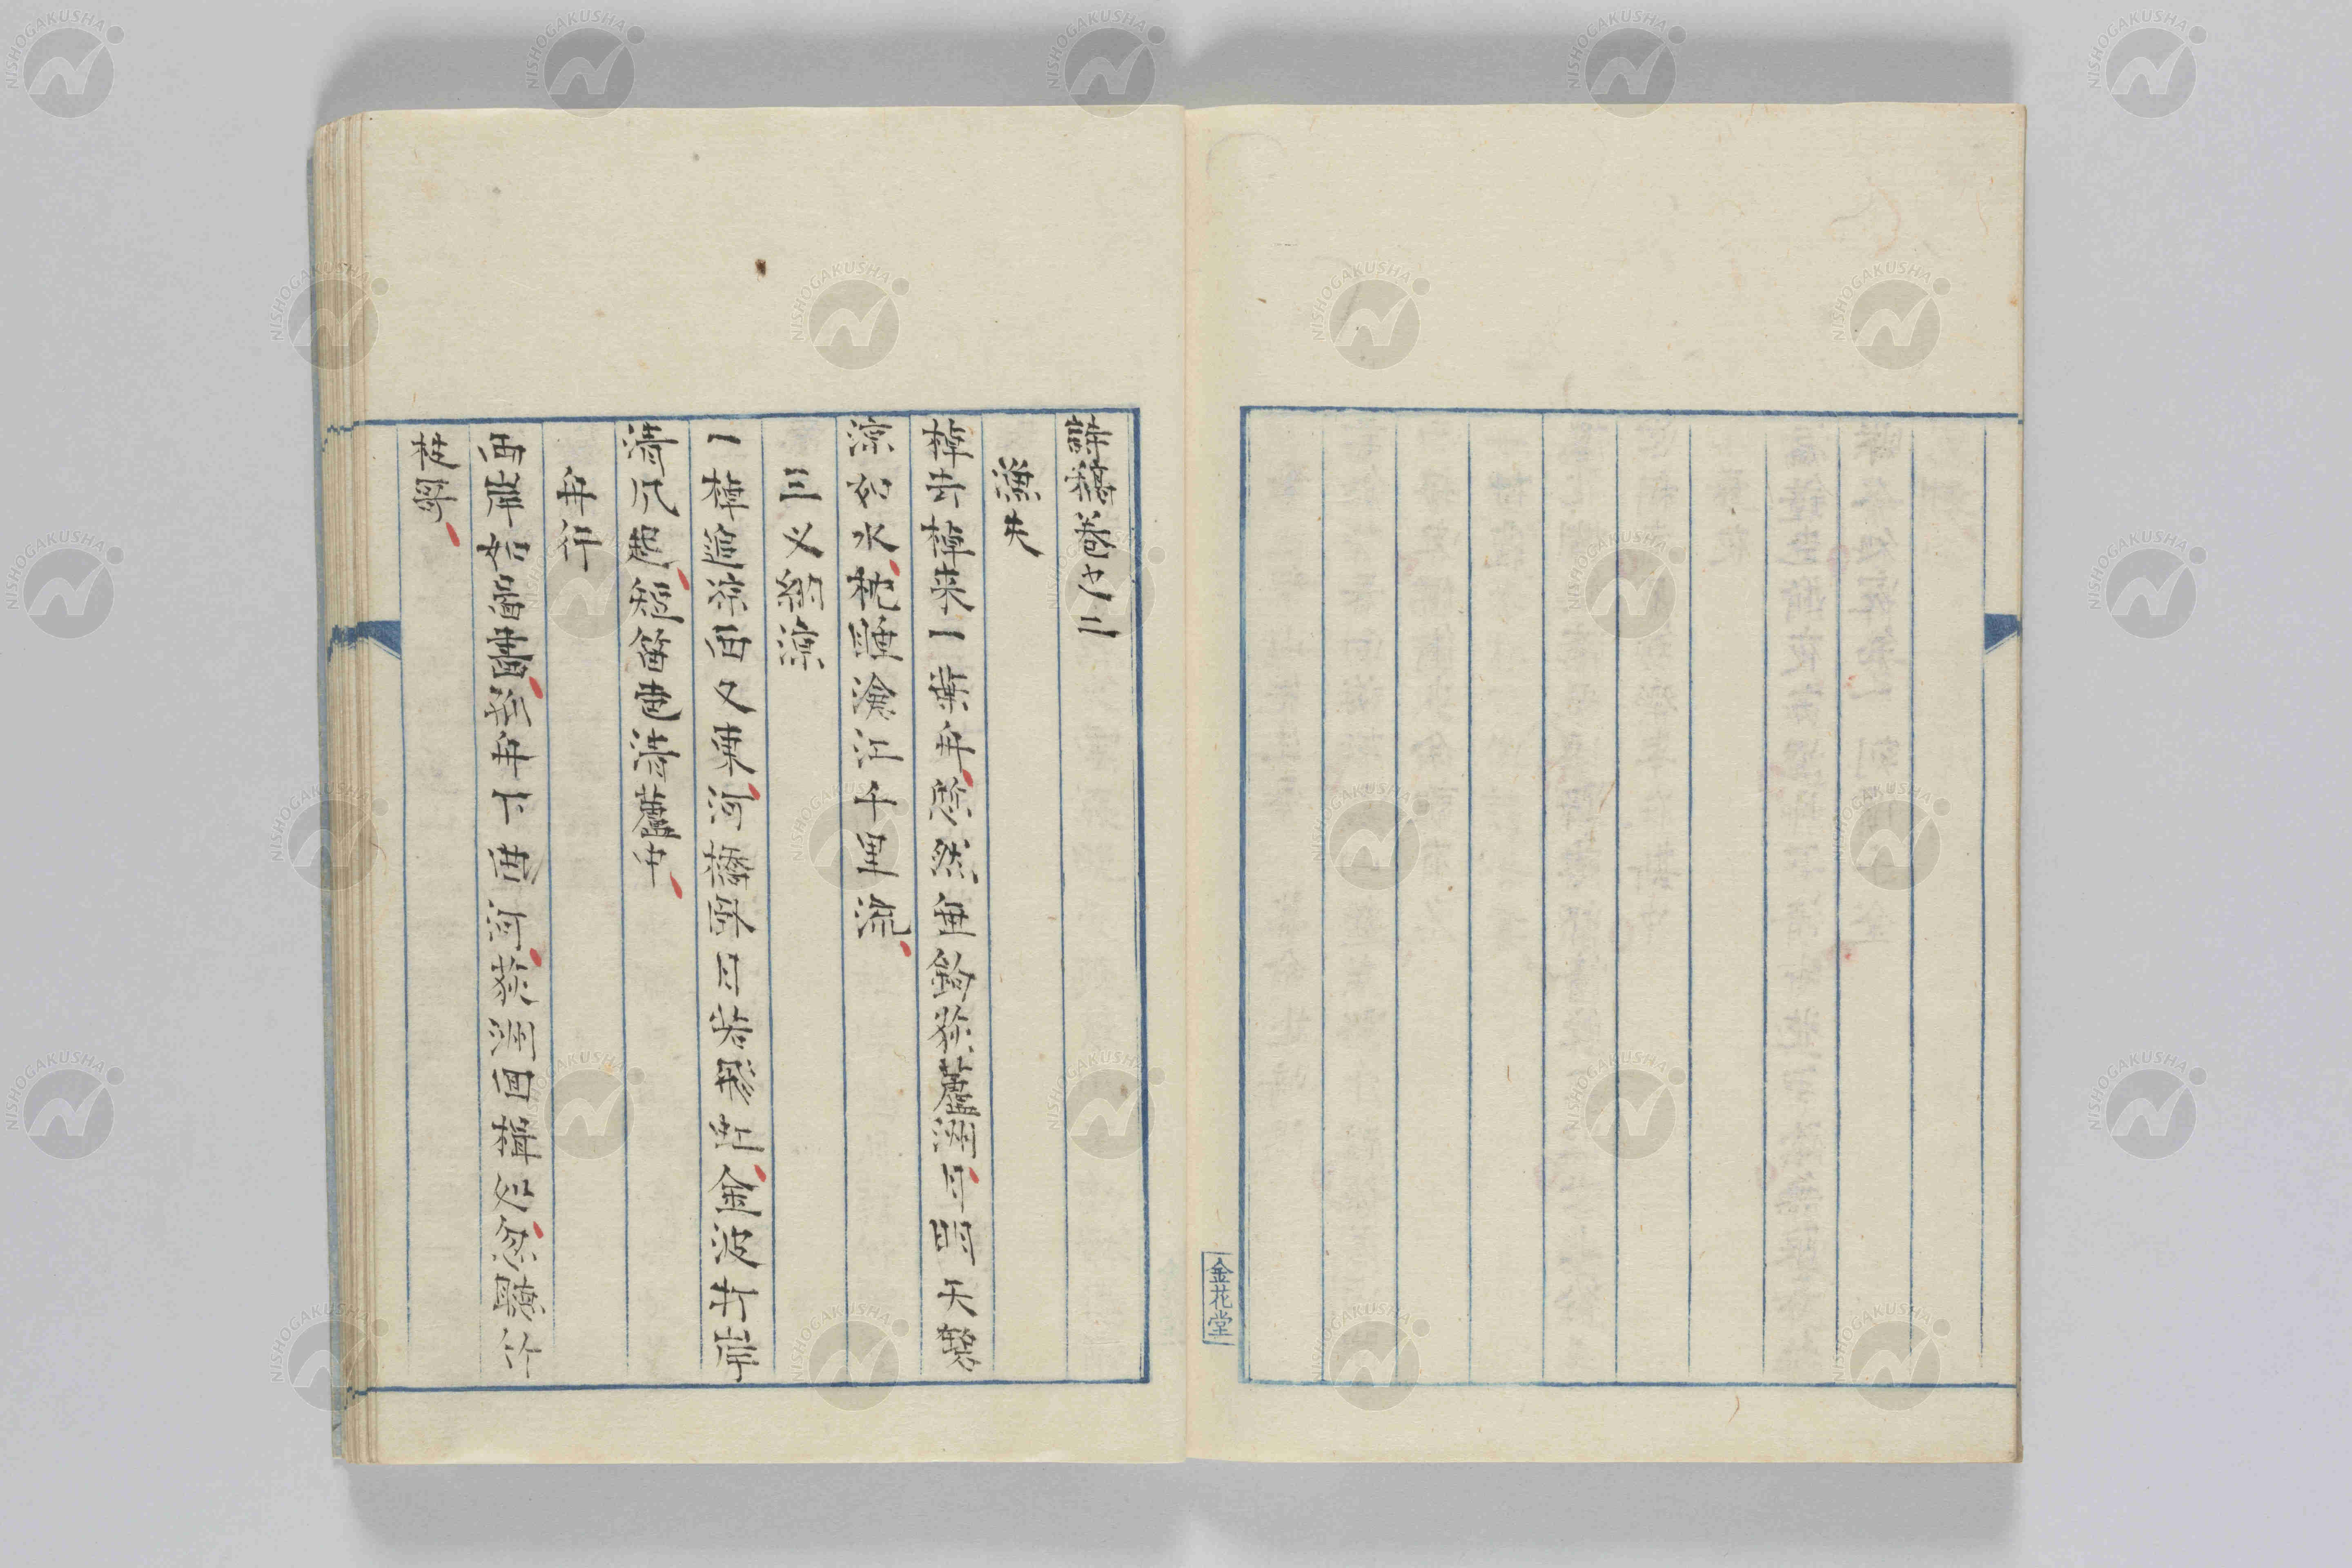 詩稿卷之二
漁夫
棹去棹来一葉舟悠然垂釣荻蘆洲月明天
涼如水枕睡滄江千里流
三叉納涼
一棹進涼西又東河橋際月若彩虹金波打岸
清风起短笛曲清蘆中
舟行
両岸如看畫孤舟下曲河荻洲回楫処忽聽竹
枝哥
金花堂
NISHOGAKUSHA